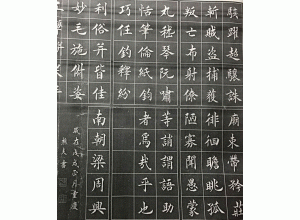 駭躍超驤誅廟束帶矜莊
斬賊盜捕獲徘徊瞻眺孤
叛亡布射僚陋寡聞愚蒙
丸嵇琴阮嘯等誚謂語助
恬筆倫紙鈞者焉哉乎也
巧任釣釋紛
利俗并皆佳南朝梁周興
妙毛施淑姿
歲在戊戌月重慶
夫書